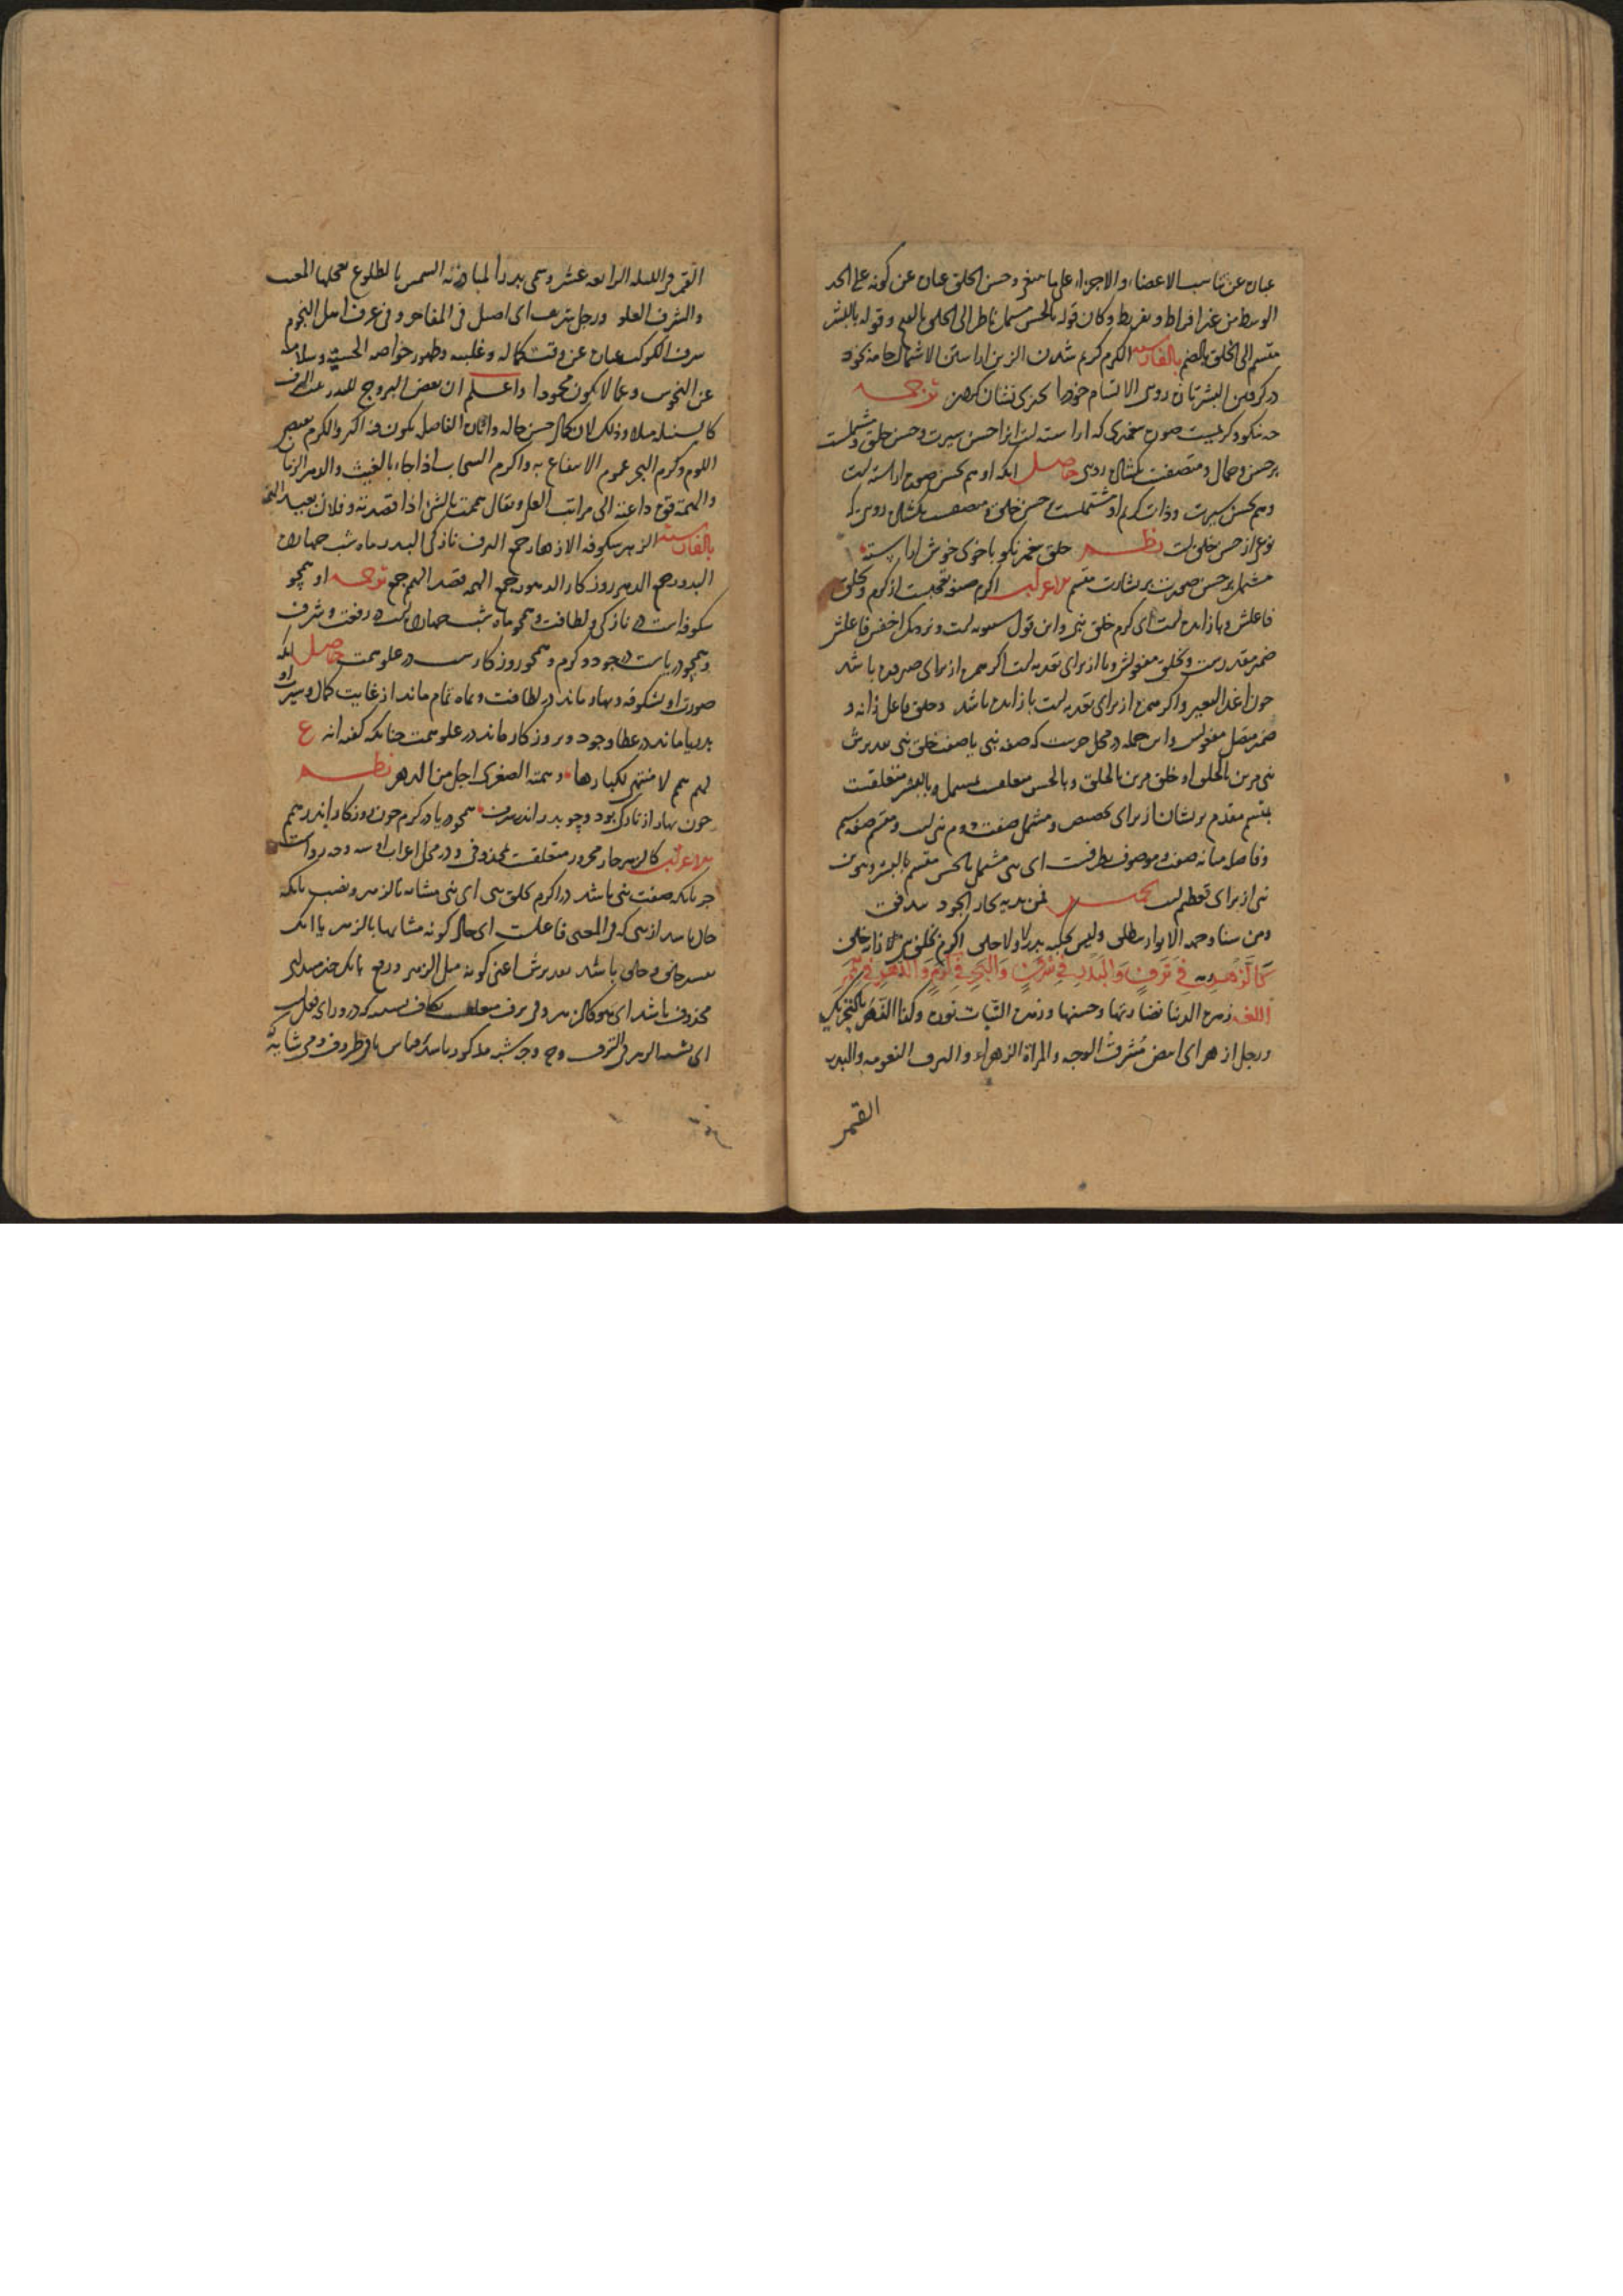 عبارة عن تناسب الاعضاء والاجزاء على ما ينبغي وحسن الخلق عبارة عن كونه على الحد
الوسط من غير افراط وتفريط وكان قوله بالحسن مشتمل ناظر الى الخلق بالفتح وقوله بالبشر
متسم الى الخلق بالضم بالفارسية الكرم كريم شدن الزين اراستن الاشتمال جامه بخود
در كرفتن البشر تازه روى الاتسام خود را بچيزى نشان كردن ترجمه
چه نيكو وكريمست صورت پيغمبرى كه اراسته است انرا حسن سيرت وحسن خلق ومشتملست
بر حسن وجمال ومتصفست بكشاده روى حاصل انكه او هم بحسن صورت اراسته است
وهم بحسن سيرت وذات كريم او مشتملست بر حسن خلق ومتصفست بكشاده روى كه
نوعى از حسن خلق است نظم خلق پيغمبر نكو با خوى خوش اراسته
مشتمل بر حسن صورت بر بشارت متسم الاعراب اكرم صيغه تعجبست از كرم وبخلق
فاعلش وبا زايده است اى كرم خلق نبى واين قول سيبويه است ونزديك اخفش فاعلش
ضمير مقدرست وبخلق مفعولش وبا از براى تعديه است اگر همزه از براى صيرورة باشد
چون اغد البعير واگر همزه از براى تعديه است با زايده باشد وخلق فاعل زانه و
ضمير متصل مفعولش واين جمله در محل جرست كه صفة نبى يا صفة خلق نبى تقديرش
نبى مزين بالخلق او خلق مزين بالخلق وبالحسن متعلقست بمشتمل وبالبشر متعلقست
بمتسم مقدم بر ايشان از براى تخصيص ومشتمل صفت دوم نبى است ومتسم صفة سيم
وفاصله ميانه صفة وموصوف بظرفست اى نبى مشتمل بالحسن متسم بالبشر وتنوين
نبى از براى تعظيم است
ومن سناه وجهه الانوار ولا حلى اكرم بخلق نبى زانه خلق
كَالزَّهْرِ فِي تَرَفٍ وَالْبَدْرِ فِي شَرَفٍ وَالْبَحْرِ فِي كَرَمٍ وَالدَّهْرِ فِي هِمَمٍ
اللغة زهرة الدنيا نضارتها وحسنها وزهرة النبات نوره وكذا الزهر بالتحريك
ورجل ازهر اى ابيض مشرق الوجه والمراة الزهراء والترف النعومه والبدر
القمر
القمر فى الليلة الرابعة عشر وسمى بدرا لمبادرته الشمس بالطلوع يعجلها المغيب
والشرف العلو ورجل شريف اى اصيل فى المفاخر وفى عرف اهل النجوم
شرف الكوكب عبارة عن وقت كماله وغلبته وظهور خواصه الحسنة وسلامته
عن النحوس وعما لا يكون محمودا واعلم ان بعض البروج للبدر عين الشرف
كالسنبلة مثلا وذلك لان كمال حسن حاله واثاره الفاضله يكون فيه اكثر والكرم نقيض
اللوم وكرم البحر عموم الانتفاع به واكرم السحاب اذا جاء بالغيث والدهر الزمان
والهمة قوة داعية الى مراتب العلى ويقال هممت بالشئ اذا قصدته وفلان بعيد الهمة
بالفارسية الزهر شكوفه الازهار جمع الترف نازكى البدر ماه شب چهارده
البدور جمع الدهر روزكار الدهور جمع الهمة قصد الهمم جمع ترجمه او همچو
شكوفه است در نازكى ولطافت وهمچو ماه شب چهارده است در رفعت وشرف
وهمچو درياست در جود وكرم وهمچو روزكارست در علو همت حاصل انكه
صورت او بشكوفه وبهار ماند در لطافت وبماه تمام ماند از غايت كمال وسيرت او
بدريا ماند در عطا وجود وبروزكار ماند در علو همت چنانكه گفته اند ع
لهم همم لا منتهى لكبارها وهمته الصغرى اجل من الدهر نظم
چون بهار از نازكى بود وچو بدر اندر شرف همچو دريا در كرم چون روزكار اندر همم
الاعراب كالزهر جار مجرور متعلقست بمحذوفى ودر محل اعراب او سه وجه رواست
جر بانكه صفت نبى باشد در اكرم بخلق نبى اى نبى مشابه بالزهر ونصب بانكه
حال باشد از نبى كه فى المعنى فاعلست اى حال كونه مشابها بالزهر يا انكه
باشد تقديرش اعنى كونه مثل الزهر ورفع بانكه خبر مبتداى
محذوف باشد اى هو كالزهر وفى ترف متعلقست بكاف تشبيه كه در وراى فعلست
اى يشبه الزهر فى الترف وجه شبه مذكور باشد وقياس باقى ظروف ومى شايد كه